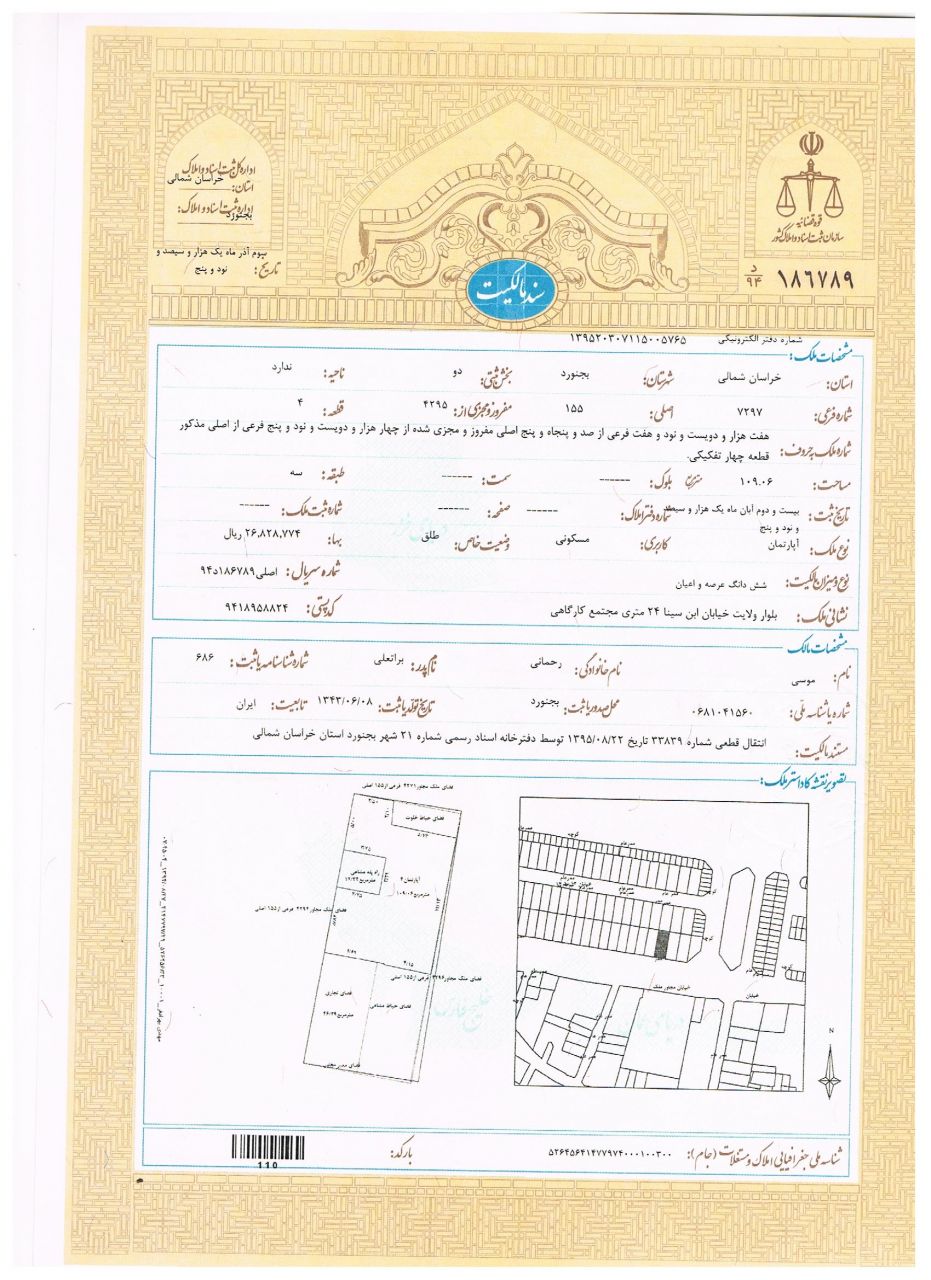 اداره کل ثبت اسناد و املاک
استان: خراسان شمالی
اداره ثبت اسناد و املاک: بجنورد
تاریخ: سوم آذر ماه یک هزار و سیصد و
نود و پنج
قوه قضائیه
سازمان ثبت اسناد و املاک کشور
۱۸۶۷۸۹ د/۹۴
سند مالکیت
شماره دفتر الکترونیکی ۱۳۹۵۲۰۳۰۷۱۱۵۰۰۵۷۶۵
مشخصات ملک:
استان: خراسان شمالی شهرستان: بجنورد بخش ثبتی: دو ناحیه: ندارد
شماره فرعی: ۷۲۹۷ اصلی: ۱۵۵ مفروز و مجزی از: ۴۲۹۵ قطعه: ۴
شماره ملک به حروف: هفت هزار و دویست و نود و هفت فرعی از صد و پنجاه و پنج اصلی مفروز و مجزی شده از چهار هزار و دویست و نود و پنج فرعی از اصلی مذکور
قطعه چهار تفکیکی.
مساحت: ۱۰۹.۰۶ مترمربع بلوک: ------ سمت: ------ طبقه: سه
تاریخ ثبت: بیست و دوم آبان ماه یک هزار و سیصد شماره دفتر املاک: ------ صفحه: ------ شماره ثبت ملک: ------
و نود و پنج
نوع ملک: آپارتمان کاربری: مسکونی وضعیت خاص: طلق بها: ۲۶,۸۲۸,۷۷۴ ریال
نوع و میزان مالکیت: شش دانگ عرصه و اعیان شماره سریال: اصلی۱۸۶۷۸۹د۹۴
نشانی ملک: بلوار ولایت خیابان ابن سینا ۲۴ متری مجتمع کارگاهی کدپستی: ۹۴۱۸۹۵۸۸۲۴
مشخصات مالک
نام: موسی نام خانوادگی: رحمانی نام پدر: براتعلی شماره شناسنامه یا ثبت: ۶۸۶
شماره یا شناسه ملی: ۰۶۸۱۰۴۱۵۶۰ محل صدور یا ثبت: بجنورد تاریخ تولد یا ثبت: ۱۳۴۳/۰۶/۰۸ تابعیت: ایران
مستند مالکیت: انتقال قطعی شماره ۳۳۸۳۹ تاریخ ۱۳۹۵/۰۸/۲۲ توسط دفترخانه اسناد رسمی شماره ۲۱ شهر بجنورد استان خراسان شمالی
تصویر نقشه کاداستر ملک:
فضای ملک مجاور ۴۲۷۱ فرعی از ۱۵۵ اصلی
فضای حیاط خلوت
راه پله مشاعی
آپارتمان ۴
فضای ملک مجاور ۴۲۹۴ فرعی از ۱۵۵ اصلی
فضای ملک مجاور ۴۲۹۶ فرعی از ۱۵۵ اصلی
فضای تجاری
فضای حیاط مشاعی
کوچه
خیابان مجاور ملک
خیابان
N
شناسه ملی جغرافیایی املاک و مستغلات (جام): ۵۲۶۴۵۶۴۱۴۷۷۹۷۴۰۰۰۱۰۰۳۰۰ بارکد:
110